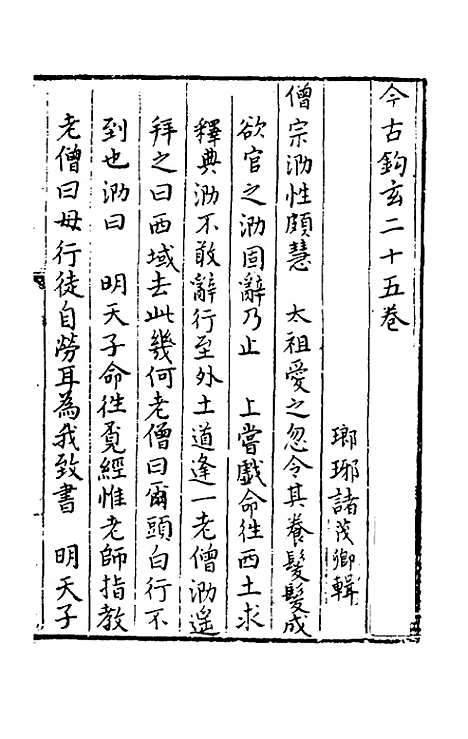 今古鈎玄二十五卷
瑯琊諸茂卿輯
僧宗泐性頗慧　太祖愛之忽令其養髮髮成
欲官之泐固辭乃止　上嘗戲命往西土求
釋典泐不敢辭行至外土道逢一老僧泐遙
拜之曰西域去此幾何老僧曰爾頭白行不
到也泐曰　明天子命往覓經惟老師指教
老僧曰毋行徒自勞耳為我致書　明天子